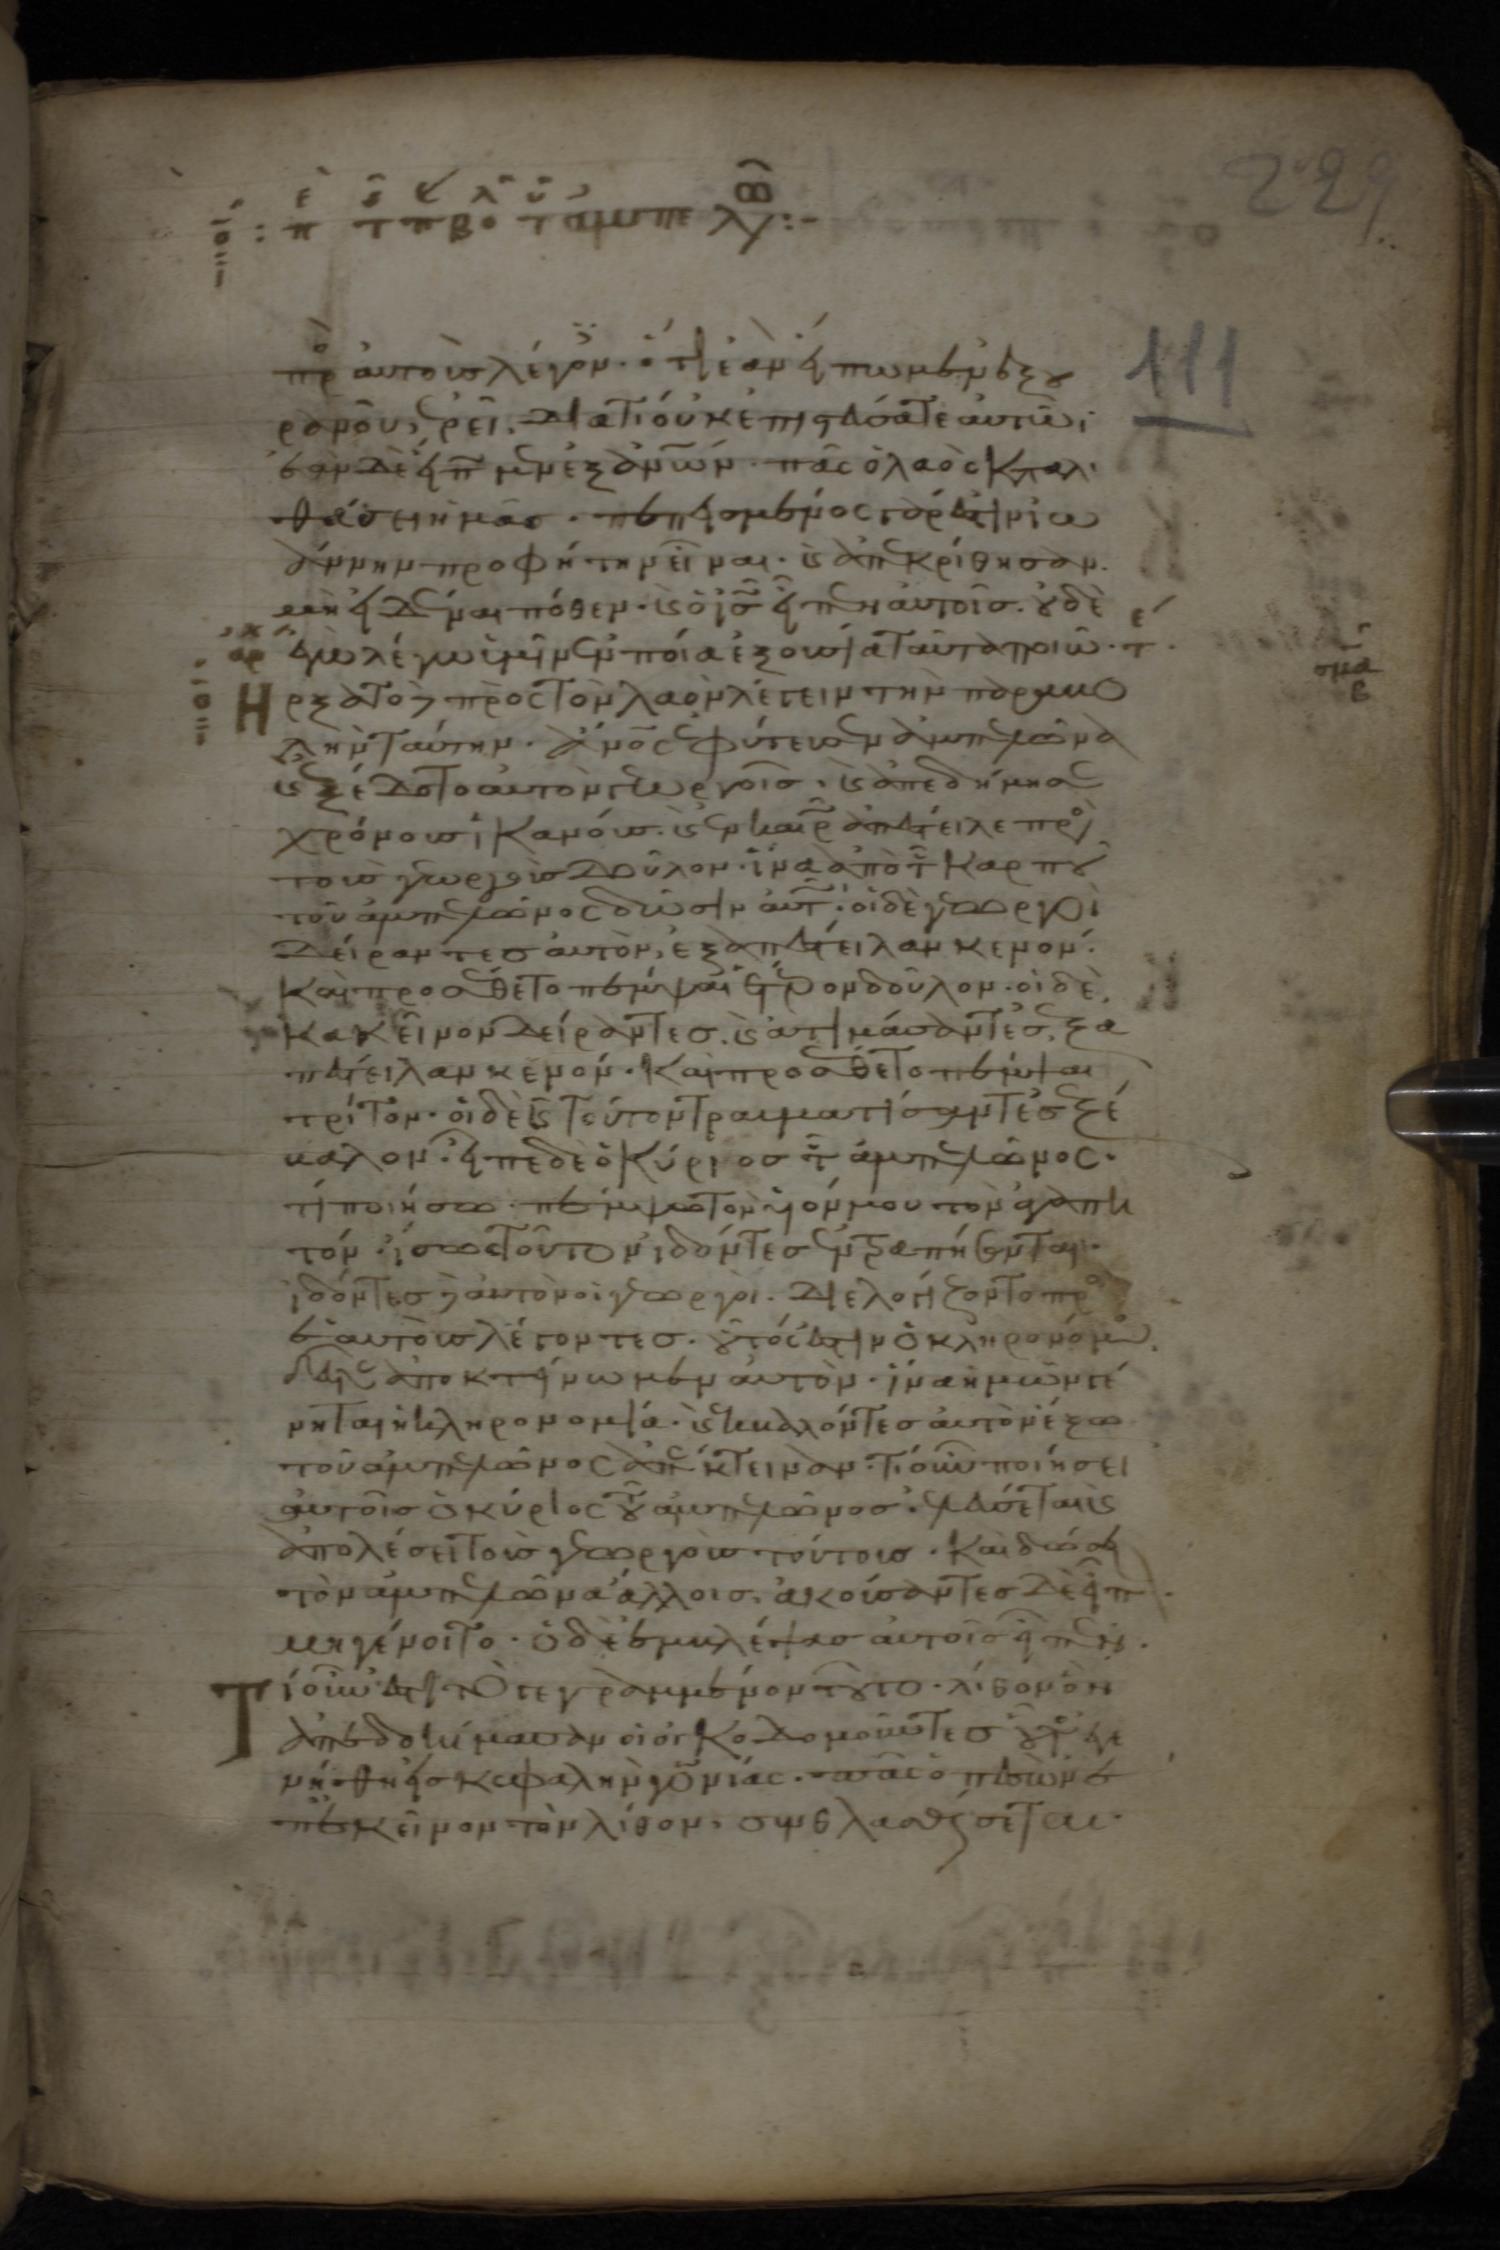 229
111
πρ αυτοὺς λέγον· ὅτι ἐὰν εἴπωμεν ἐξ οὐ
ρανοῦ, ἐρεῖ, διατί οὐκ ἐπιστεύσατε αὐτῶ·
ἐὰν δὲ εἴπωμεν ἐξ ἀνων· πᾶς ὁ λαὸς καταλι
θάσει ἡμᾶς· πεπεισμένος γάρ ἐστιν ἰω
άννην προφήτην εἶναι· καὶ ἀπεκρίθησαν
μὴ εἰδέναι πόθεν· καὶ ὁ ις εἶπεν αὐτοῖς· οὐδὲ
ἐγὼ λέγω ὑμῖν ἐν ποία ἐξουσία ταῦτα ποιῶ· τε
αρχ
Ηρξατο δὲ πρὸς τὸν λαὸν λέγειν τὴν παραβο
λὴν ταύτην· ἄνος ἐφύτευσεν ἀμπελῶνα
καὶ ἐξέδοτο αὐτὸν γεωργοῖς· καὶ ἀπεδήμησε
χρόνους ἱκανούς· καὶ ἐν καιρῶ ἀπέστειλε πρὸς
τοὺς γεωργοὺς δοῦλον· ἵνα ἀπὸ τοῦ καρποῦ
τοῦ ἀμπελῶνος δῶσιν αὐτῶ· οἱ δὲ γεωργοὶ
δείραντες αὐτὸν, ἐξαπέστειλαν κενόν·
καὶ προσέθετο πέμψαι ἕτερον δοῦλον· οἱ δὲ
κἀκεῖνον δείραντες καὶ ἀτιμάσαντες, ἐξα
πέστειλαν κενόν· καὶ προσέθετο πέμψαι
τρίτον· οἱ δὲ καὶ τοῦτον τραυματίσαντες ἐξέ
βαλον· εἶπε δὲ ὁ κύριος τοῦ ἀμπελῶνος·
τί ποιήσω· πέμψω τὸν υἱόν μου τὸν ἀγαπη
τόν· ἴσως τοῦτον ἰδόντες ἐντραπήσονται·
ἰδόντες δὲ αὐτὸν οἱ γεωργοὶ· διελογίζοντο πρὸς
ἑαυτοὺς λέγοντες· οὗτός ἐστιν ὁ κληρονόμος,
δεῦτε ἀποκτείνωμεν αὐτὸν· ἵνα ἡμῶν γέ
νηται ἡ κληρονομία· καὶ ἐκβαλόντες αὐτὸν ἔξω
τοῦ ἀμπελῶνος ἀπέκτειναν· τί οὖν ποιήσει
αὐτοῖς ὁ κύριος τοῦ ἀμπελῶνος· ἐλεύσεται καὶ
ἀπολέσει τοὺς γεωργοὺς τούτους· καὶ δώσει
τὸν ἀμπελῶνα ἄλλοις, ἀκούσαντες δὲ εἶπ
μὴ γένοιτο· ὁ δὲ ἐμβλέψας αὐτοῖς εἶπεν·
Τί οὖν ἐστι τὸ γεγραμμένον τοῦτο· λίθον ὃν
ἀπεδοκίμασαν οἱ οἰκοδομοῦντες οὗτος ἐγε
νήθη εἰς κεφαλὴν γωνίας· πᾶς ὁ πεσὼν ἐ
π ἐκεῖνον τὸν λίθον, συνθλασθήσεται·